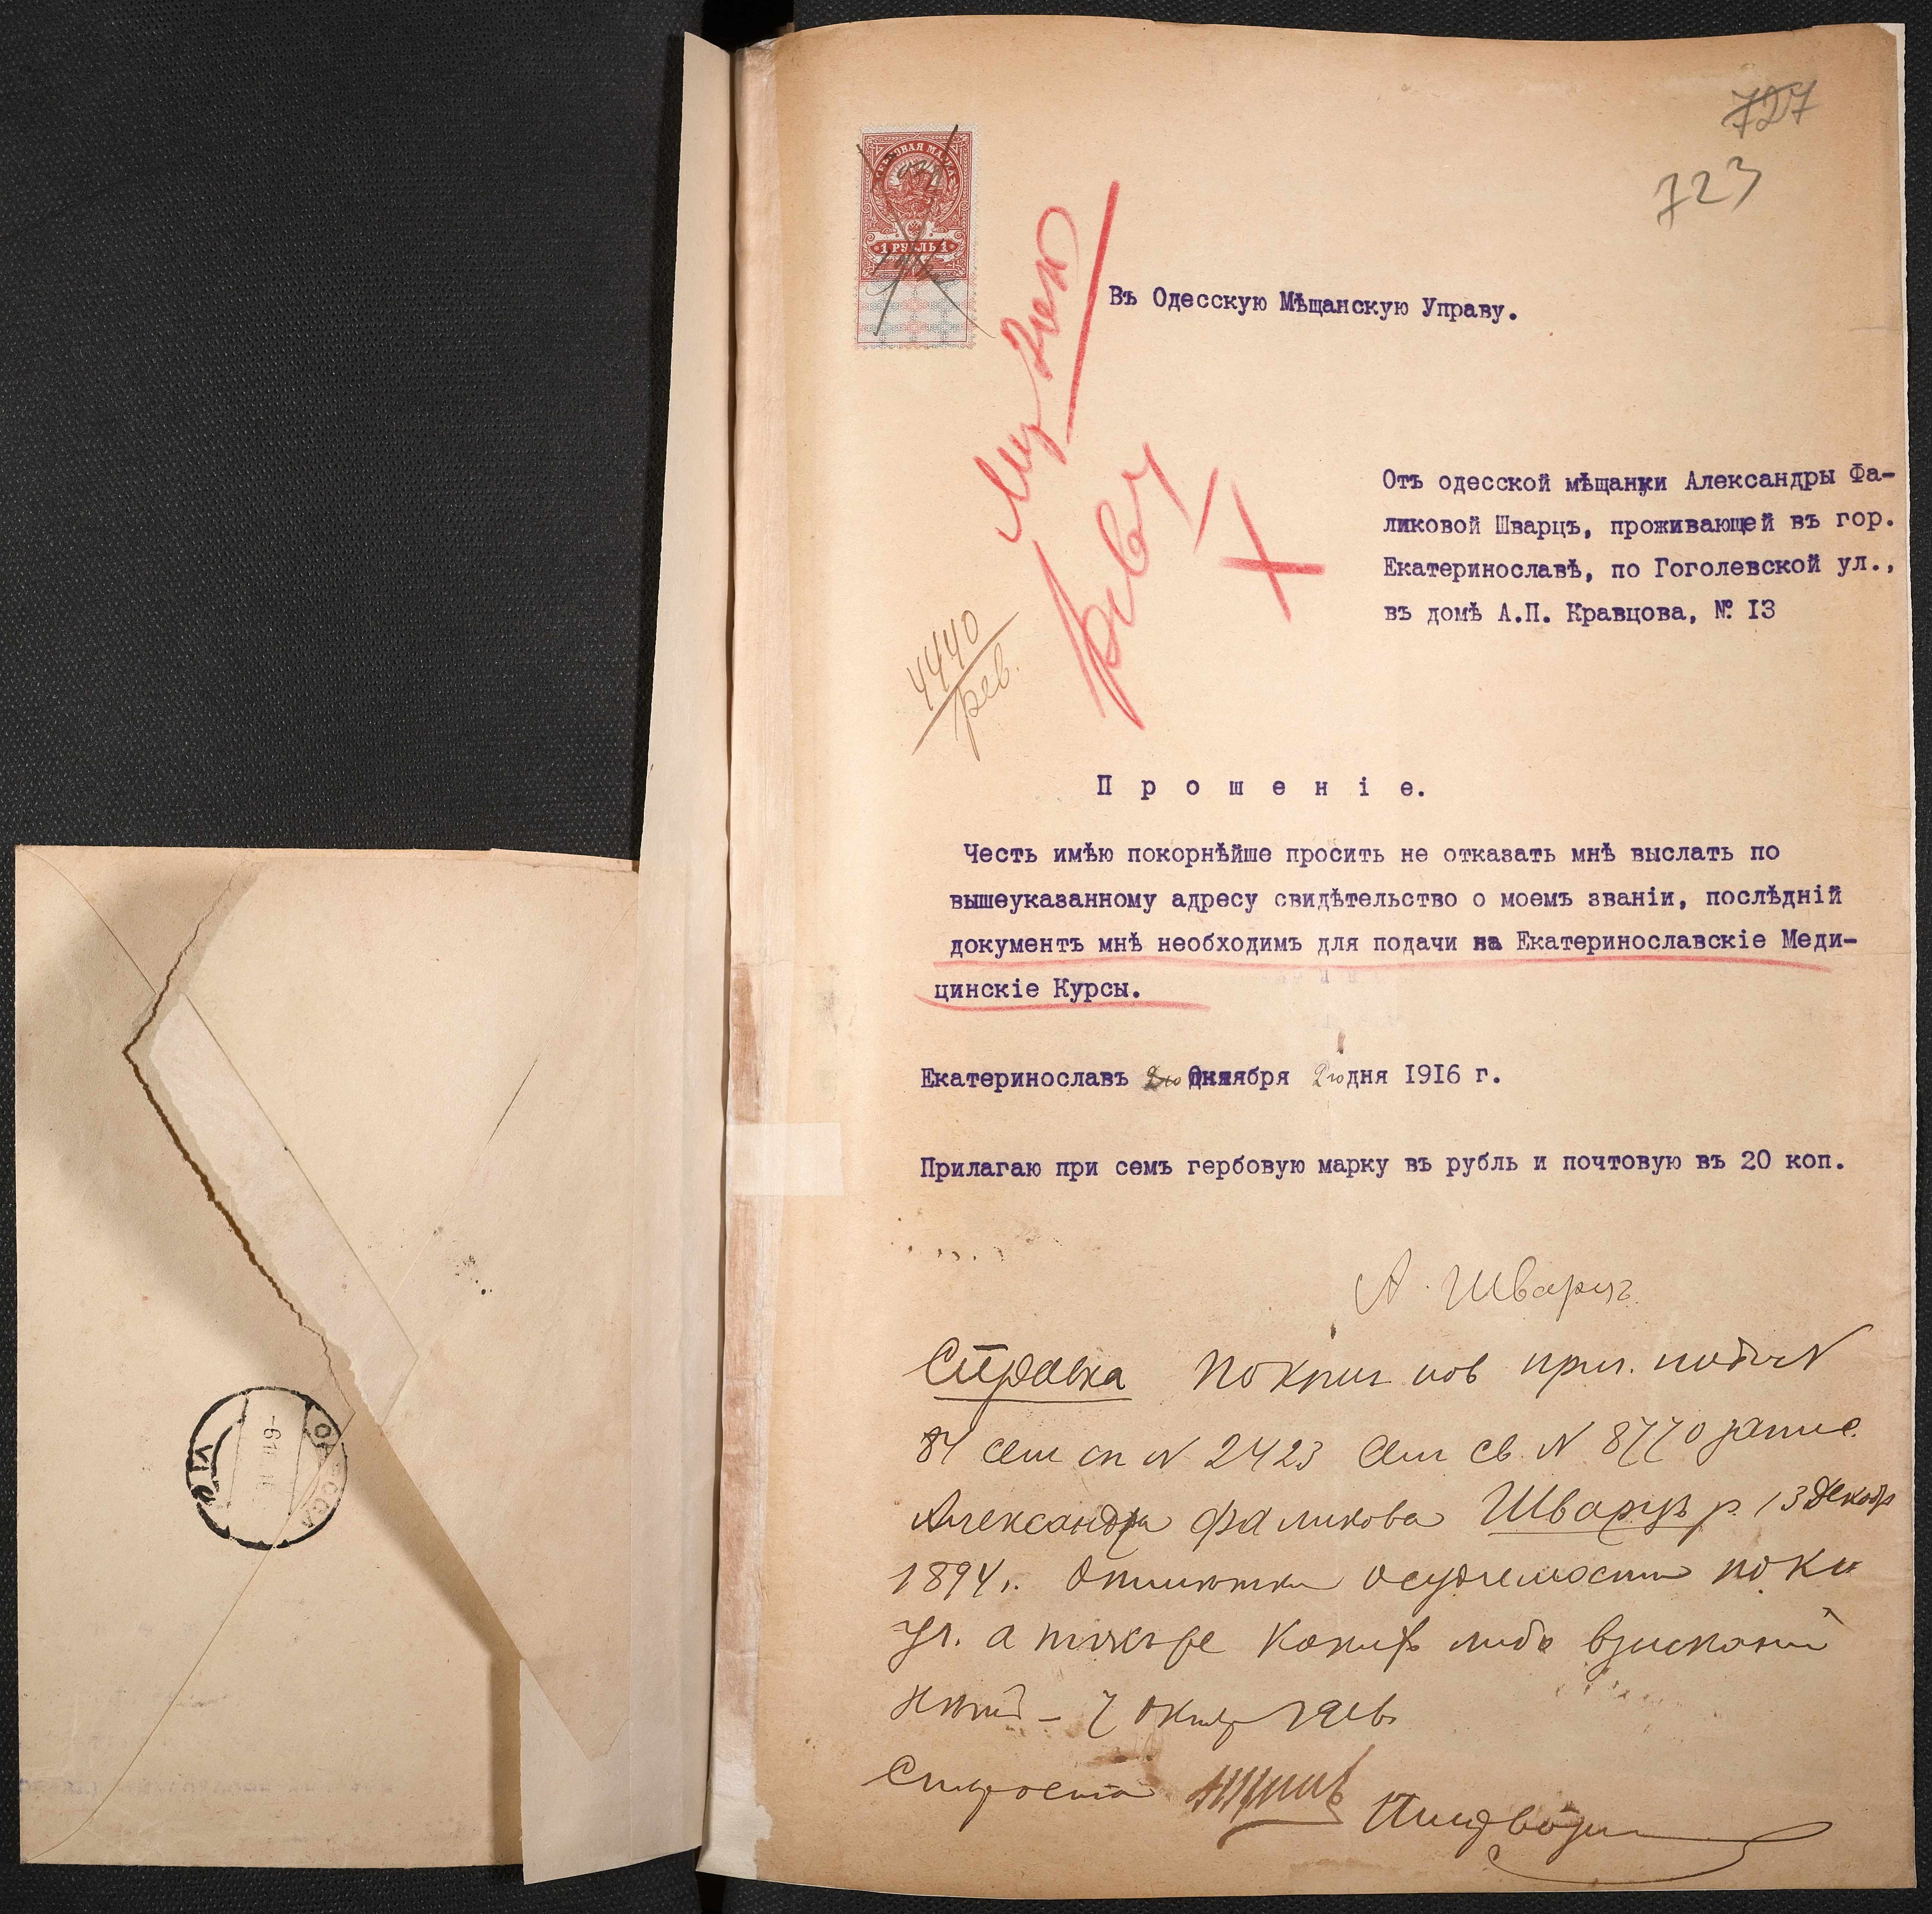 727
723
ГЕРБОВАЯ МАРКА
1 РУБЛЬ 1
Въ Одесскую Мѣщанскую Управу.
Отъ одесской мѣщанки Александры Фа-
ликовой Шварцъ, проживающей въ гор.
Екатеринославѣ, по Гоголевской ул.,
въ домѣ А.П. Кравцова, № 13
4440
рев.
Прошеніе.
Честь имѣю покорнѣйше просить не отказать мнѣ выслать по
вышеуказанному адресу свидѣтельство о моемъ званіи, послѣдній
документъ мнѣ необходимъ для подачи на Екатеринославскіе Меди-
цинскіе Курсы.
Екатеринославъ Октября 2го дня 1916 г.
Прилагаю при семъ гербовую марку въ рубль и почтовую въ 20 коп.
А. Шварцъ
Справка По книг под №
84 сем сп № 2423 сем св. № 8770 запис.
Александра Фаликова Шварцъ р. 13 Декабр
1894 г. осудимости по
а также либо взысканій
7 1916
Староста
ОДЕССА